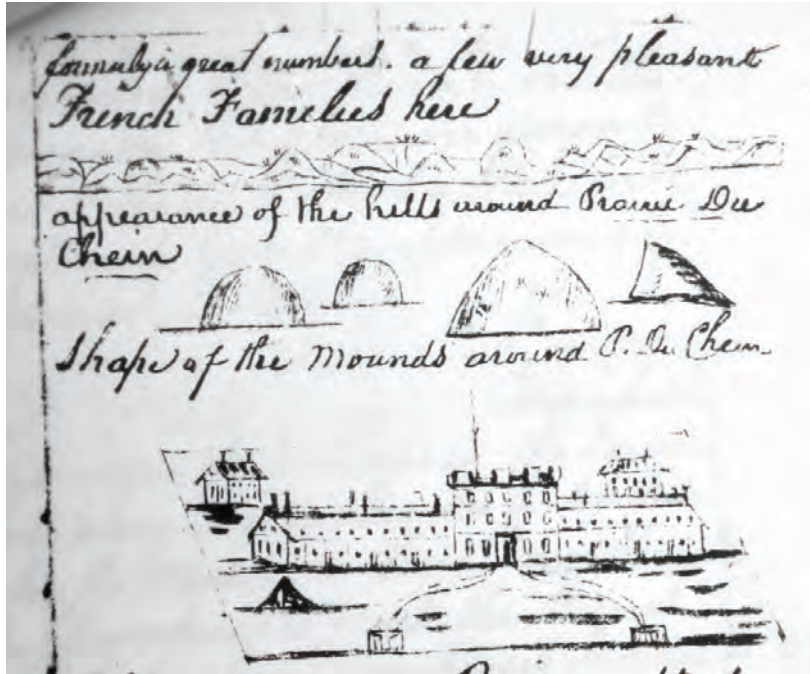 formerly a great numbers. a few very pleasant
French Famelies here
appearance of the hills around Prairie Du
Chein
Shape of the Mounds around P. Du Chein